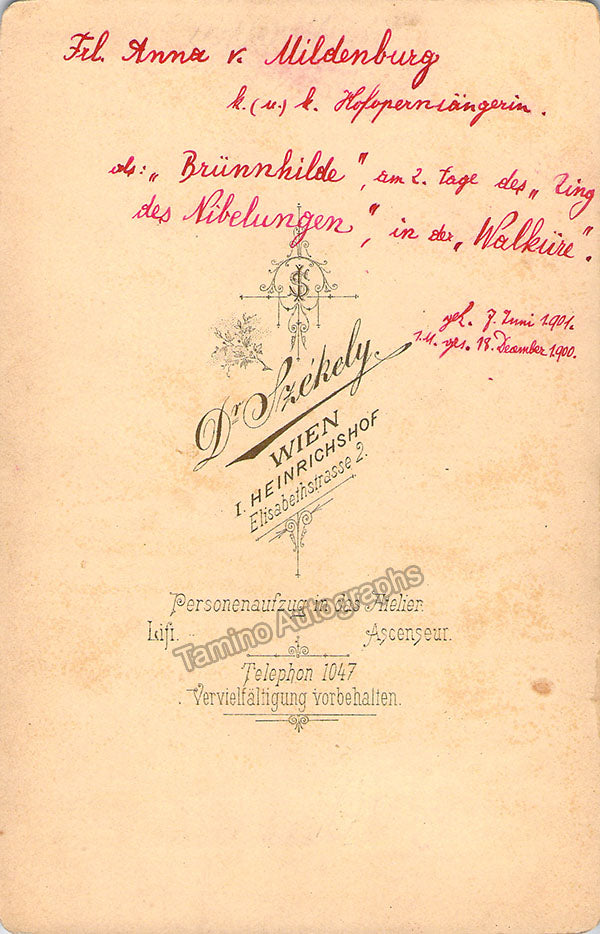 Frl. Anna v. Mildenburg
k. (u.) k. Hofopernsängerin.
als: „Brünnhilde", am 2. Tage des „Ring
des Nibelungen", in der „Walküre".
geh. 7. Juni 1901.
1. M. ges. 18. December 1900.
JS
Dr Székely.
WIEN
I. HEINRICHSHOF
Elisabethstrasse 2.
Personenaufzug in das Atelier.
Lift. Ascenseur.
Tamino Autographs
Telephon 1047
Vervielfältigung vorbehalten.